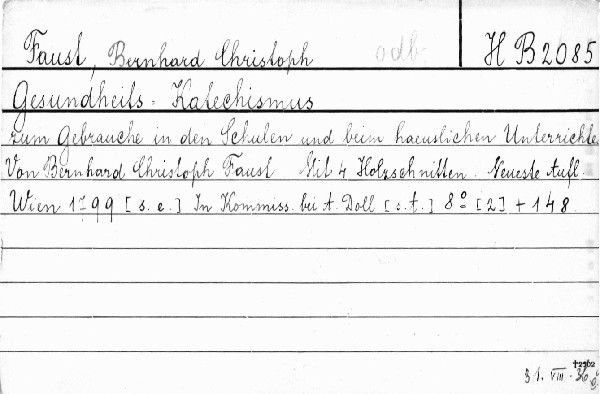 Faust, Bernhard Christoph odb. H B 2085
Gesundheits-Katechismus
zum Gebrauche in den Schulen und beim haeuslichen Unterrichte.
Von Bernhard Christoph Faust Mit 4 Holzschnitten. Neueste Aufl.
Wien 1799 [s. e.] In Kommiss. bei A. Doll [s. t.] 8° [2] + 148.
31. VIII. 36